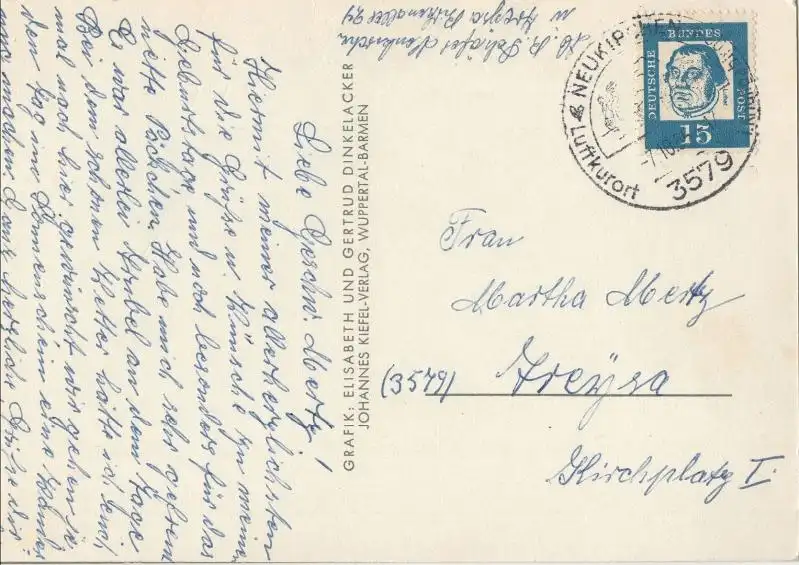 Liebe Geschw. Mertz!
Hiermit meinen allerherzlichsten
für die Grüße u. Wünsche zu meinem
Geburtstage und noch besonders für das
nette Päckchen. Habe mich sehr gefreut
Es war allerlei Trubel an dem Tage
Bei dem schönen Wetter hätte ich Euch
mal nach hier gewünscht wir gehen je
den Tag im Sonnenschein eine Wander
uns machen. Ganz herzliche Grüße Dir
GRAFIK: ELISABETH UND GERTRUD DINKELACKER
JOHANNES KIEFEL-VERLAG, WUPPERTAL-BARMEN
Schäfer
u. Treysa
DEUTSCHE
BUNDES
POST
15
NEUKIRCHEN
Luftkurort
3579
Frau
Martha Mertz
(3579) Treysa
Kirchplatz I.